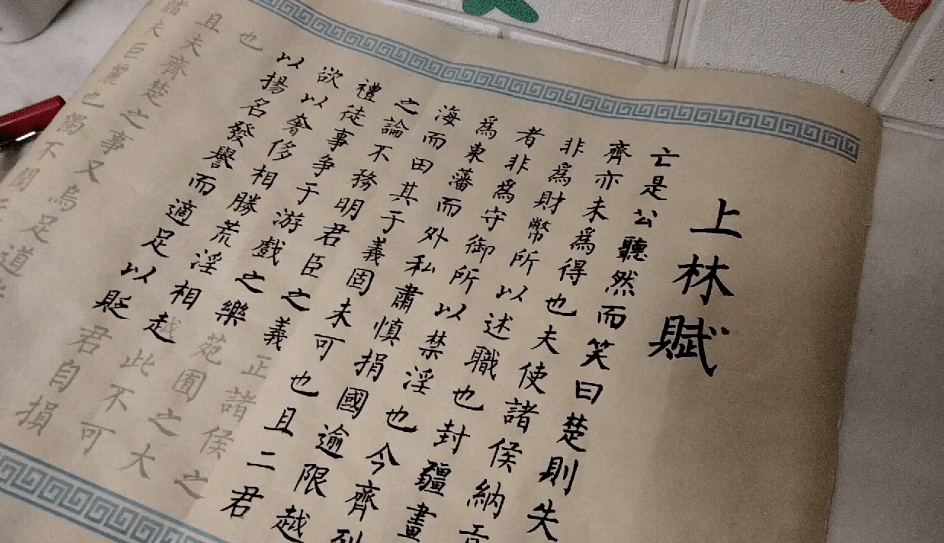 上林賦
亡是公聽然而笑曰楚則失
齊亦未爲得也夫使諸侯納貢
非爲財幣所以述職也封疆畫
者非爲守御所以禁淫也今齊列
爲東藩而外私肅慎捐國逾限越
海而田其于義固未可也且二君
之論不務明君臣之義正諸侯之
禮徒事爭于游戲之樂苑囿之大
欲以奢侈相勝荒淫相越此不可
以揚名發譽而適足以貶君自損
也
且夫齊楚之事又烏足道
睹夫巨麗也獨不聞